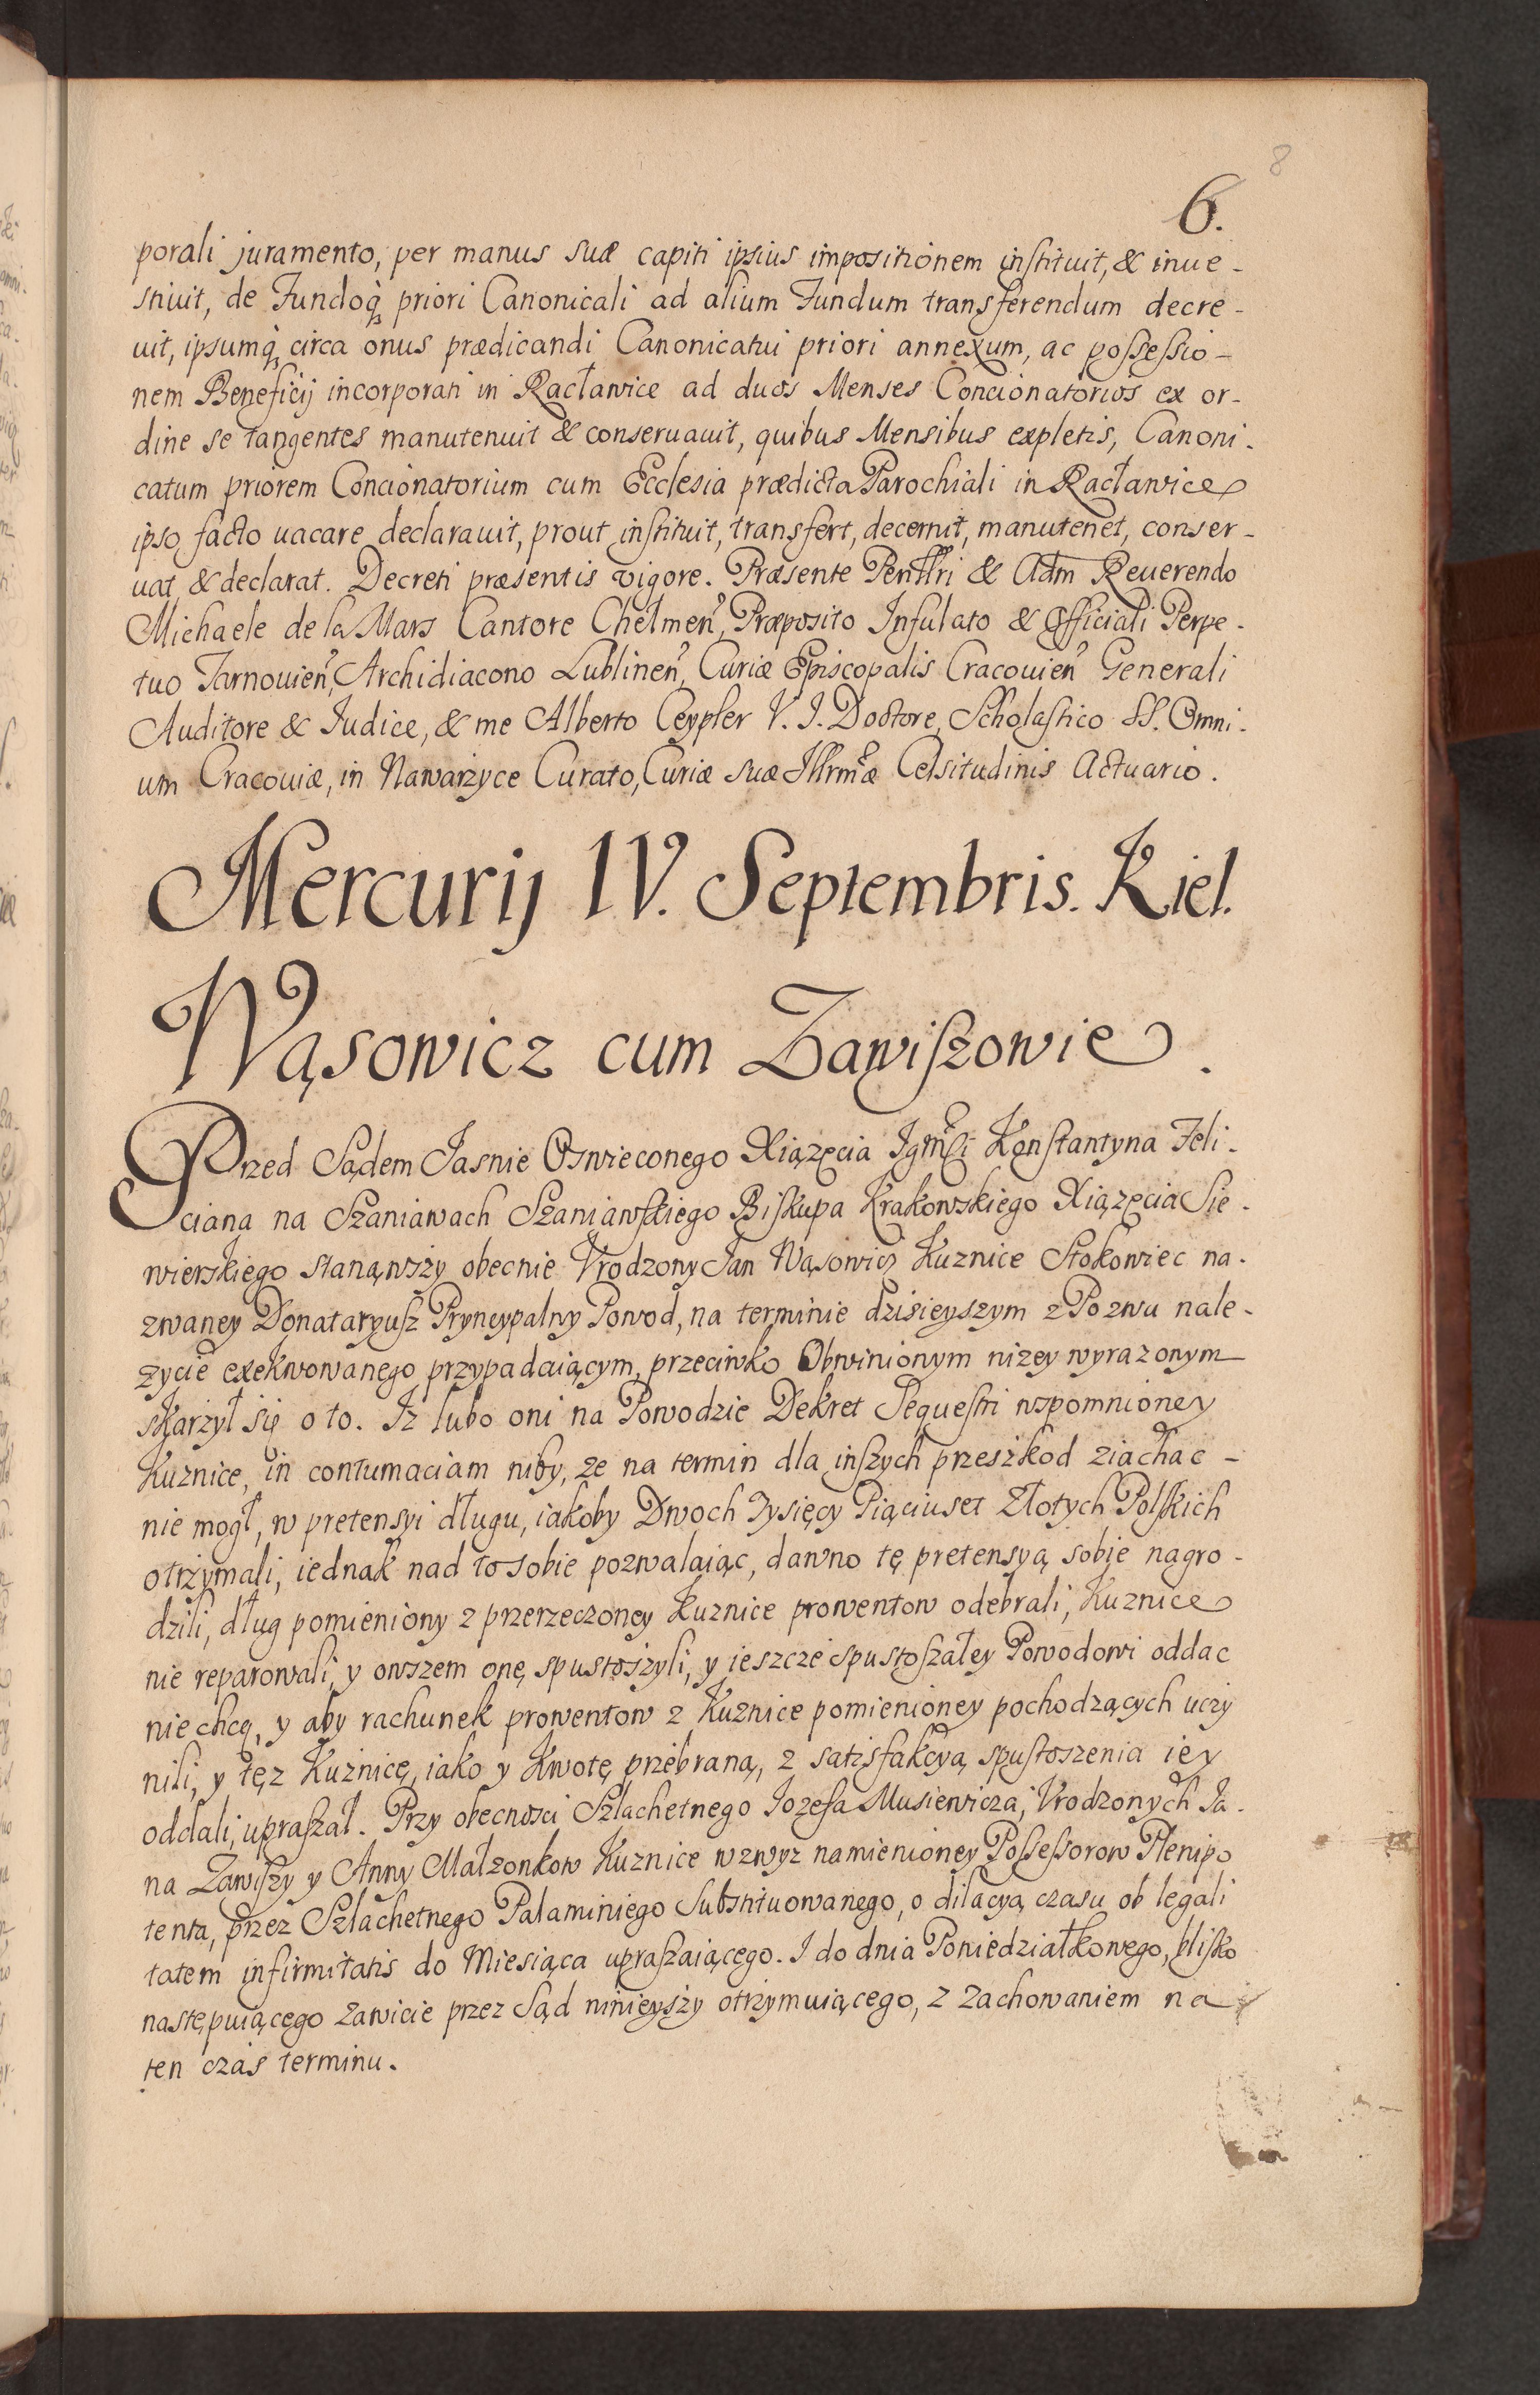 8
6.
porali juramento, per manus suæ capiti ipsius impositionem instituit, & inue-
stiuit, de Fundoq̨ priori Canonicali ad alium Fundum transferendum decre-
uit, ipsumq̨ circa onus prædicandi Canonicatui priori annexum, ac possessio-
nem Beneficij incorporati in Racławice ad duos Menses Concionatorios ex or-
dine se tangentes manutenuit & conseruauit, quibus Mensibus expletis, Canoni-
catum priorem Concionatorium cum Ecclesia prædicta Parochiali in Racławice
ipso facto uacare declarauit, prout instituit, transfert, decernit, manutenet, conser-
uat, & declarat. Decreti præsentis vigore. Præsente Penllri & Adm Reuerendo
Michaele de la Mars Cantore Chelmen, Præposito Infulato & Officiali Perpe-
tuo Tarnouien, Archidiacono Lublinen, Curiæ Episcopalis Cracouien Generali
Auditore & Judice, & me Alberto Ceypler V. J. Doctore, Scholastico SS. Omni-
um Cracouiæ, in Nawarzyce Curato, Curiæ suæ Illrmæ Celsitudinis Actuario.
Mercurij IV. Septembris. Kiel.
Wąsowicz cum Zawiszowie.
Przed Sądem Jasnie Oswieconego Xiązęcia Jgmsci Konstantyna Feli-
ciana na Szaniawach Szaniawskiego Biskupa Krakowskiego Xiązęcia Sie-
wierskiego stanąwszy obecnie Vrodzony Jan Wąsowicz Kuznice Stokowiec na-
zwaney Donataryusz Pryncypalny Powod, na terminie dzisieyszym z Pozwu nale-
zycie exekwowanego przypadaiącym, przeciwko Obwinionym nizey wyrazonym
skarzył się o to. Iz lubo oni na Powodzie Dekret Sequestri wspomnioney
Kuznice, in contumaciam niby, ze na termin dla inszych przeszkod ziachac-
nie mogł, w pretensyi długu, iakoby Dwoch Tysięcy Piąciuset Złotych Polskich
otrzymali, iednak nad to sobie pozwalaiąc, dawno tę pretensyą sobie nagro-
dzili, dług pomieniony z przerzeczoney Kuznice prowentow odebrali, Kuznice
nie reparowali, y owszem onę spustoszyli, y ieszcze spustoszałey Powodowi oddac
nie chcą, y aby rachunek prowentow z Kuznice pomienioney pochodzących uczy
nili, y tęz Kuznicę, iako y Kwotę przebraną, z satisfakcyą spustoszenia iey
oddali, upraszał. Przy obecnosci Szlachetnego Jozefa Musiewicza, Vrodzonych Ja-
na Zawiszy y Anny Małzonkow Kuznice wzwyz namienioney Possessorow Plenipo
tenta, przez Szlachetnego Palaminiego Substituowanego, o dilacyą czasu ob legali
tatem infirmitatis do Miesiąca upraszaiącego. I do dnia Poniedziałkowego, blisko
następuiącego zawicie przez Sąd ninieyszy otrzymuiącego, z zachowaniem na
ten czas terminu.